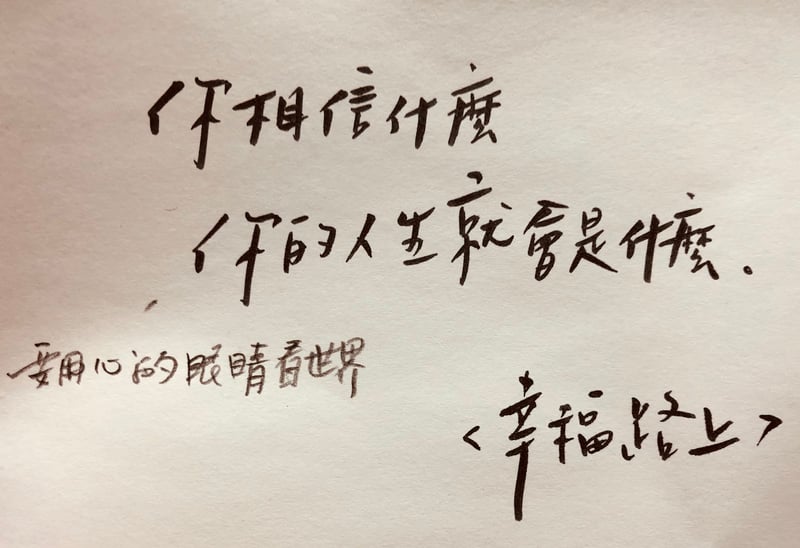 你相信什麼
你的人生就會是什麼.
要用心的眼睛看世界
<幸福路上>